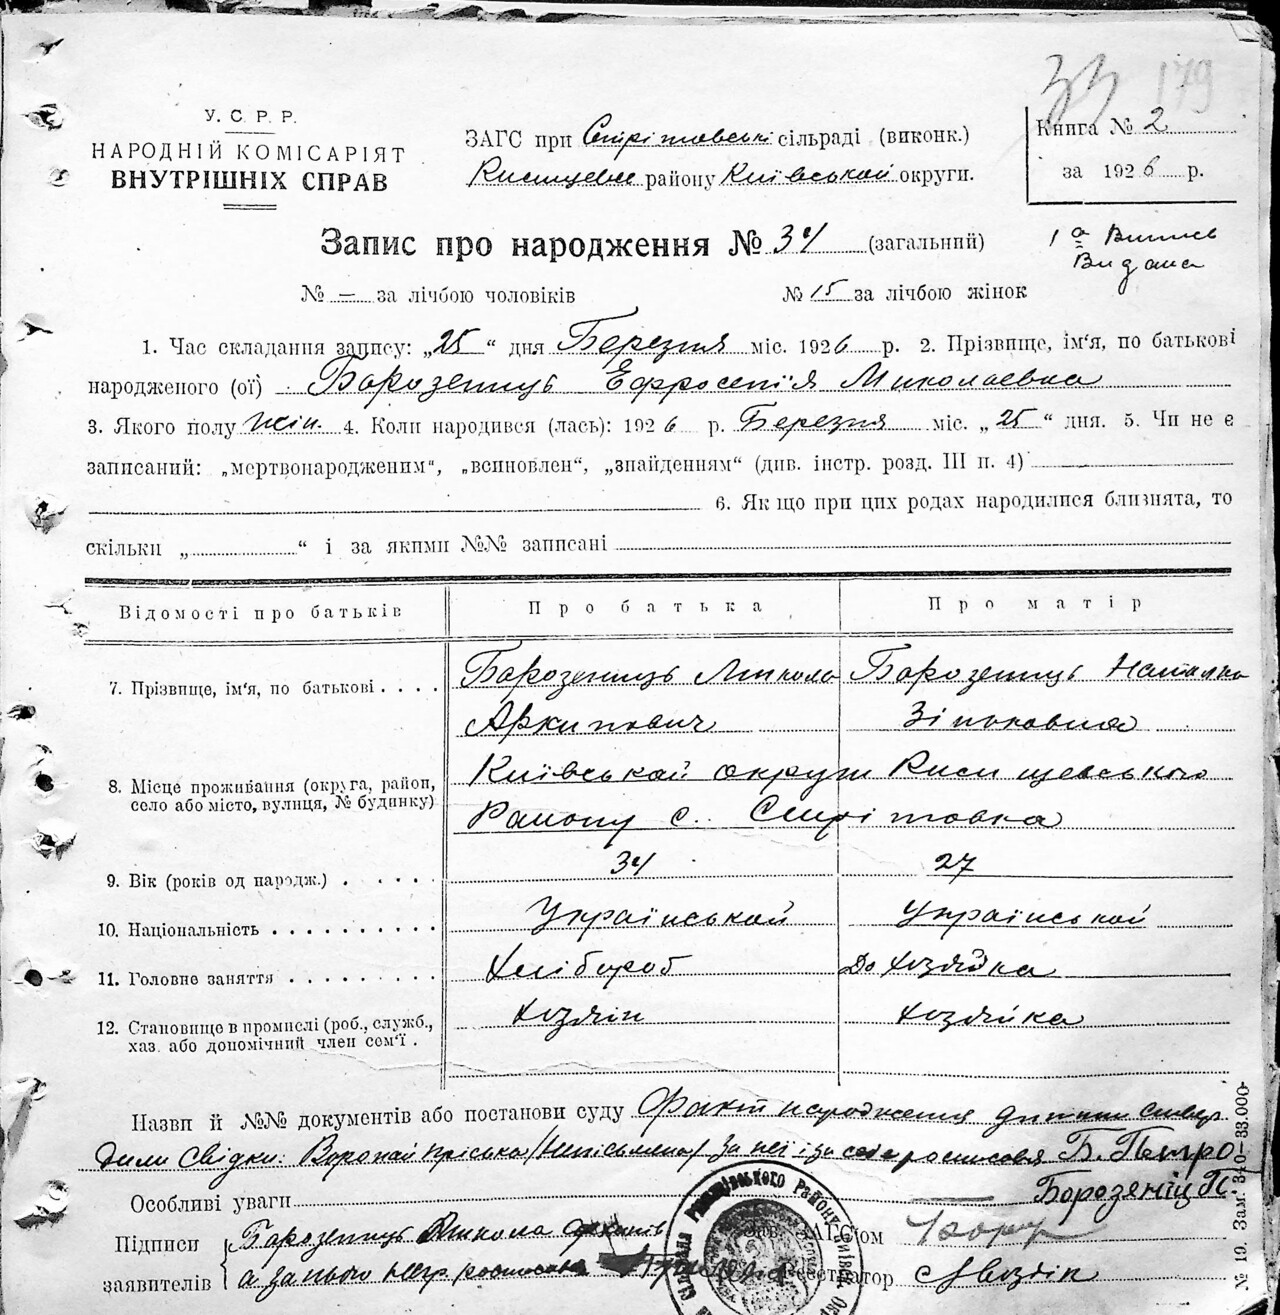 33 179
У. С. Р. Р.
НАРОДНІЙ КОМІСАРІЯТ
ВНУТРІШНІХ СПРАВ
ЗАГС при сільраді (виконк.)
району Київськой округи.
Книга № 2
за 1926 р.
Запис про народження № 34 (загальний)
1а Випись
Видана
№ — за лічбою чоловіків № 15 за лічбою жінок
1. Час складання запису: „25“ дня Березня міс. 1926 р. 2. Прізвище, ім'я, по батькові
народженого (ої) Борозенець Ефросенія Миколаевна
3. Якого полу жін. 4. Коли народився (лась): 1926 р. Березня міс. „25“ дня. 5. Чи не є
записаний: „мертвонародженим“, „всиновлен“, „знайденням“ (див. інстр. розд. III п. 4)
6. Як що при цих родах народилися близнята, то
скільки „ “ і за якими №№ записані
Відомості про батьків Про батька Про матір
7. Прізвище, ім'я, по батькові . . . . Борозенець Микола Борозенець Наталка
Архипович Зіньковна
8. Місце проживання (округа, район, село або місто, вулиця, № будинку) Київськой округи
Району с.
9. Вік (років од народж.) . . . . . 34 27
10. Національність . . . . . . . . . . Українськой Українськой
11. Головне заняття . . . . . . . . Хлібороб До хозяйка
12. Становище в промислі (роб., служб., хаз. або допомічний член сем'ї . Хозяїн Хозяйка
Назви й №№ документів або постанови суду Факт народження дитини ствер
дили свідки: Воропай Пріська /неписьмена/ за неї і за себе росписовся Б. Петро
Особливі уваги — Борозенець П.
Підписи Борозенець Микола
заявителів а за нього негр. росписався
Зав. ЗАГС'ом
Реєстратор
№ 19. Зам. 340—33.000-